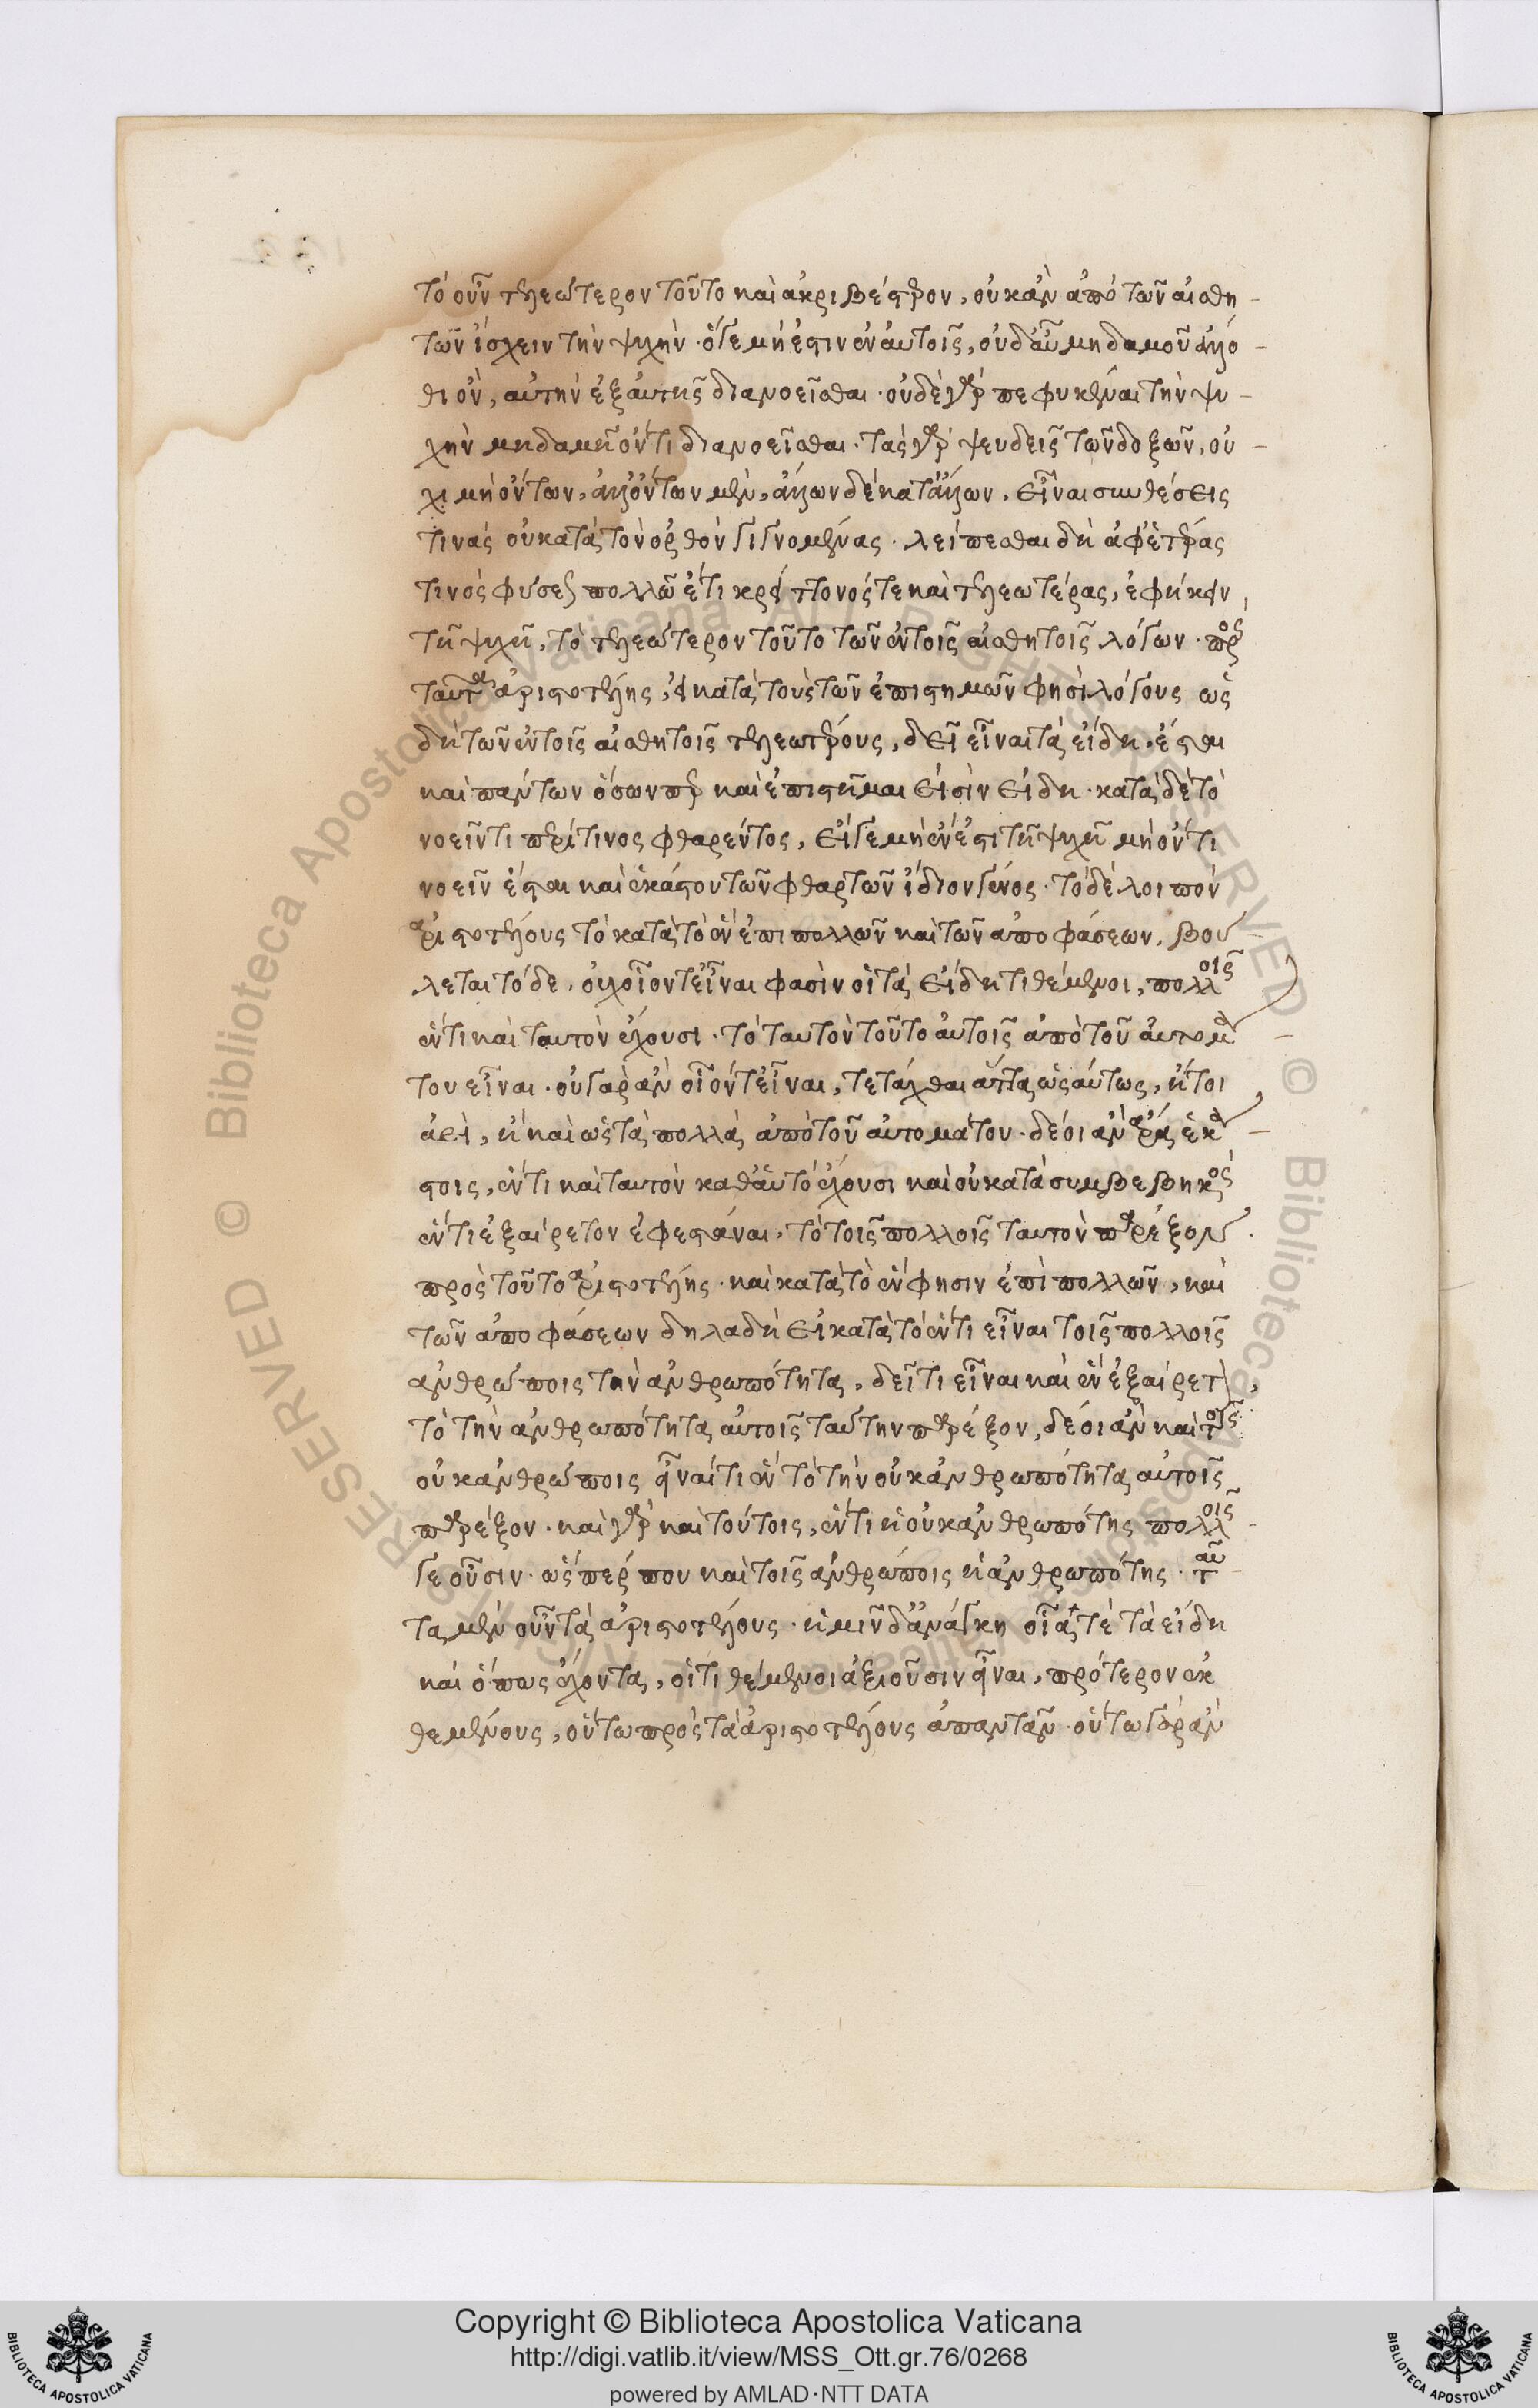 τὸ οὖν τελεώτερον τοῦτο καὶ ἀκριβέστερον, οὐκ ἂν ἀπὸ τῶν αἰσθη-
τῶν ἴσχειν τὴν ψυχὴν. ὅ γε μή ἐστιν ἐν αὐτοῖς, οὐδ' αὖ μηδαμοῦ ἄλλο-
θι ὂν, αὐτὴν ἐξ αὑτῆς διανοεῖσθαι. οὐδὲ γὰρ πεφυκέναι τὴν ψυ-
χὴν μηδαμῆ ὄντι διανοεῖσθαι. τὰς γὰρ ψευδεῖς τῶν δοξῶν, οὐ-
χὶ μὴ ὄντων, ἀλλ' ὄντων μὲν, ἄλλων δὲ κατ' ἄλλων, εἶναι συνθέσεις
τινὰς οὐ κατὰ τὸν ὀρθὸν γιγνομένας. λείπεσθαι δὴ ἀφ' ἑτέρας
τινὸς φύσεως πολλῶ ἔτι κρείττονός τε καὶ τελεωτέρας, ἐφήκειν
τῆ ψυχῆ, τὸ τελεώτερον τοῦτο τῶν ἐν τοῖς αἰσθητοῖς λόγων. πρὸς
ταῦτα ἀριστοτέλης, εἰ κατὰ τοὺς τῶν ἐπιστημῶν φησὶ λόγους ὡς
δὴ τῶν ἐν τοῖς αἰσθητοῖς τελεωτέρους, δεῖ εἶναι τὰ εἴδη. ἔσται
καὶ πάντων ὅσων περ καὶ ἐπιστῆμαι εἰσὶν εἴδη. κατὰ δὲ τὸ
νοεῖν τι περί τινος φθαρέντος, εἴ γε μὴ ἔνεστι τῆ ψυχῆ μὴ ὄν τι
νοεῖν ἔσται καὶ ἑκάστου τῶν φθαρτῶν ἴδιον γένος. τὸ δὲ λοιπὸν
ἀριστοτέλους τὸ κατὰ τὸ ἓν ἐπὶ πολλῶν καὶ τῶν ἀποφάσεων, βού-
λεται τόδε. οὐχ οἷόν τ' εἶναι φασὶν οἱ τὰ εἴδη τιθέμενοι, πολλοῖς
ἕν τι καὶ ταυτὸν ἔχουσι. τὸ ταυτὸν τοῦτο αὐτοῖς ἀπὸ τοῦ αὐτομά-
του εἶναι. οὐ γὰρ ἂν οἷόν τ' εἶναι, τετάχθαι ἅττα ὡσαύτως, ἤτοι
ἀεὶ, ἢ καὶ ὡς τὰ πολλὰ ἀπὸ τοῦ αὐτομάτου. δέοι ἂν ἄρα ἑκά-
στοις, ἕν τι καὶ ταυτὸν καθ' αὑτὸ ἔχουσι καὶ οὐ κατὰ συμβεβηκός
ἕν τι ἐξαίρετον ἐφεστάναι, τὸ τοῖς πολλοῖς ταυτὸν παρέξον.
πρὸς τοῦτο ἀριστοτέλης. καὶ κατὰ τὸ ἓν φησιν ἐπὶ πολλῶν, καὶ
τῶν ἀποφάσεων δηλαδὴ εἰ κατὰ τὸ ἕν τι εἶναι τοῖς πολλοῖς
ἀνθρώποις τὴν ἀνθρωπότητα, δεῖ τι εἶναι καὶ ἓν ἐξαίρετον,
τὸ τὴν ἀνθρωπότητα αὐτοῖς ταύτην παρέξον, δέοι ἂν καὶ τοῖς
οὐκ ἀνθρώποις εἶναί τι ἓν τὸ τὴν οὐκ ἀνθρωπότητα αὐτοῖς
παρέξον. καὶ γὰρ καὶ τούτοις, ἕν τι ἡ οὐκ ἀνθρωπότης πολλοῖς
γε οὖσιν. ὥσπέρ που καὶ τοῖς ἀνθρώποις ἡ ἀνθρωπότης. ταῦ-
τα μὲν οὖν τὰ ἀριστοτέλους. ἡμῖν δ' ἀνάγκη οἷά τε τὰ εἴδη
καὶ ὅπως ἔχοντα, οἱ τιθέμενοι ἀξιοῦσιν εἶναι, πρότερον ἐκ
θεμένους, οὕτω πρὸς τὰ ἀριστοτέλους ἀπαντᾶν. οὕτω γὰρ ἂν
Copyright © Biblioteca Apostolica Vaticana
http://digi.vatlib.it/view/MSS_Ott.gr.76/0268
powered by AMLAD·NTT DATA